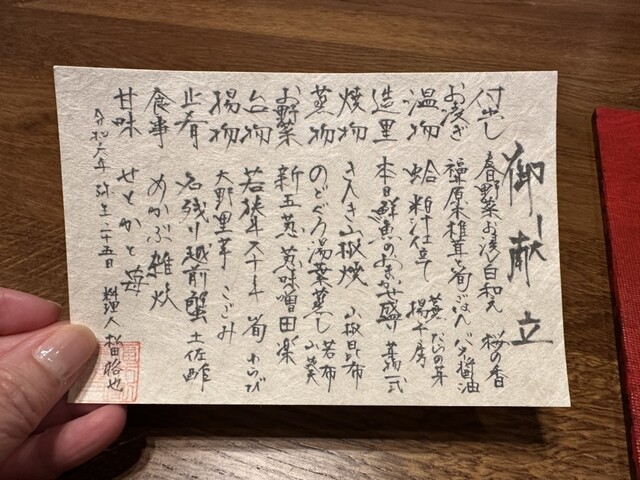 御献立
付出し 春野菜お浸し白和え 桜の香
お凌ぎ 福原木椎茸と筍ごはん バター醤油
温物 蛤 粕汁仕立て 蕪 たらの芽 揚千房
造里 本日鮮魚のおまかせ盛り 妻一式
焼物 さわら山椒焼 山椒昆布
蒸物 のどぐろ湯葉蒸し 若布 山葵
お野菜 新玉葱 葱味噌田楽
台物 若狭牛ステーキ 筍 わらび
揚物 大野里芋 こごみ
止肴 名残り越前蟹 土佐酢
食事 めかぶ雑炊
甘味 せとかと苺
令和六年 弥生二十五日
料理人